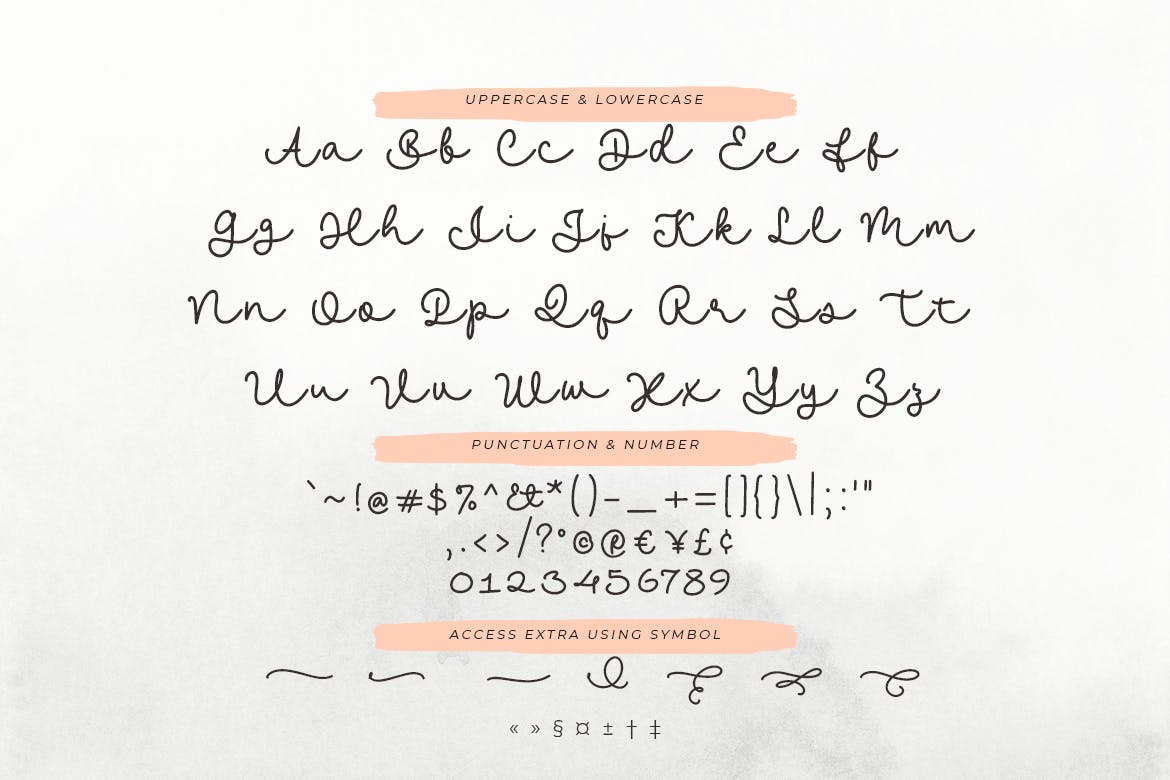 UPPERCASE & LOWERCASE
Aa Bb Cc Dd Ee Ff
Gg Hh Ii Jj Kk Ll Mm
Nn Oo Pp Qq Rr Ss Tt
Uu Vv Ww Xx Yy Zz
PUNCTUATION & NUMBER
`~!@#$%^&*()-_+=[]{}\|;:'"
,.<>/?°©®€¥£¢
0123456789
ACCESS EXTRA USING SYMBOL
« » § ¤ ± † ‡